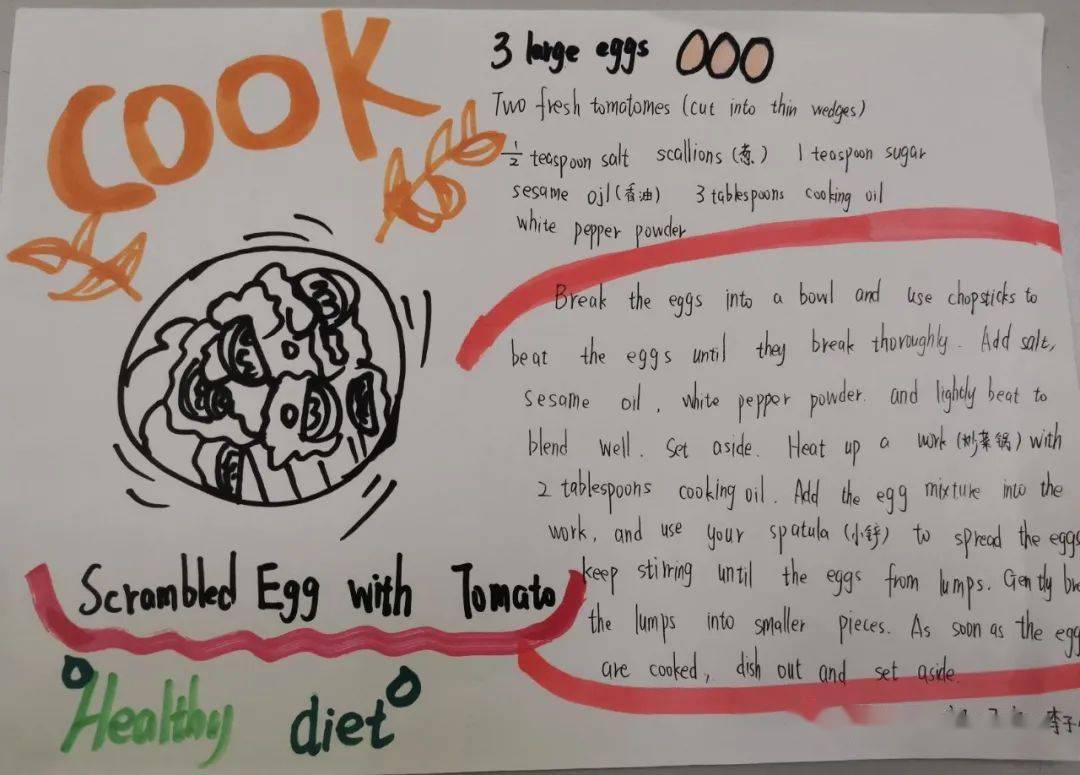 COOK
3 large eggs
Two fresh tomatomes (cut into thin wedges)
1/2 teaspoon salt scallions (葱) 1 teaspoon sugar
sesame oil (香油) 3 tablespoons cooking oil
white pepper powder
Break the eggs into a bowl and use chopsticks to
beat the eggs until they break thoroughly. Add salt,
sesame oil, white pepper powder. and lightly beat to
blend well. Set aside. Heat up a work (炒菜锅) with
2 tablespoons cooking oil. Add the egg mixture into the
work, and use your spatula (小铲) to spread the eggs
keep stirring until the eggs from lumps. Gently
the lumps into smaller pieces. As soon as the egg
are cooked, dish out and set aside.
Scrambled Egg with Tomato
Healthy diet
李子